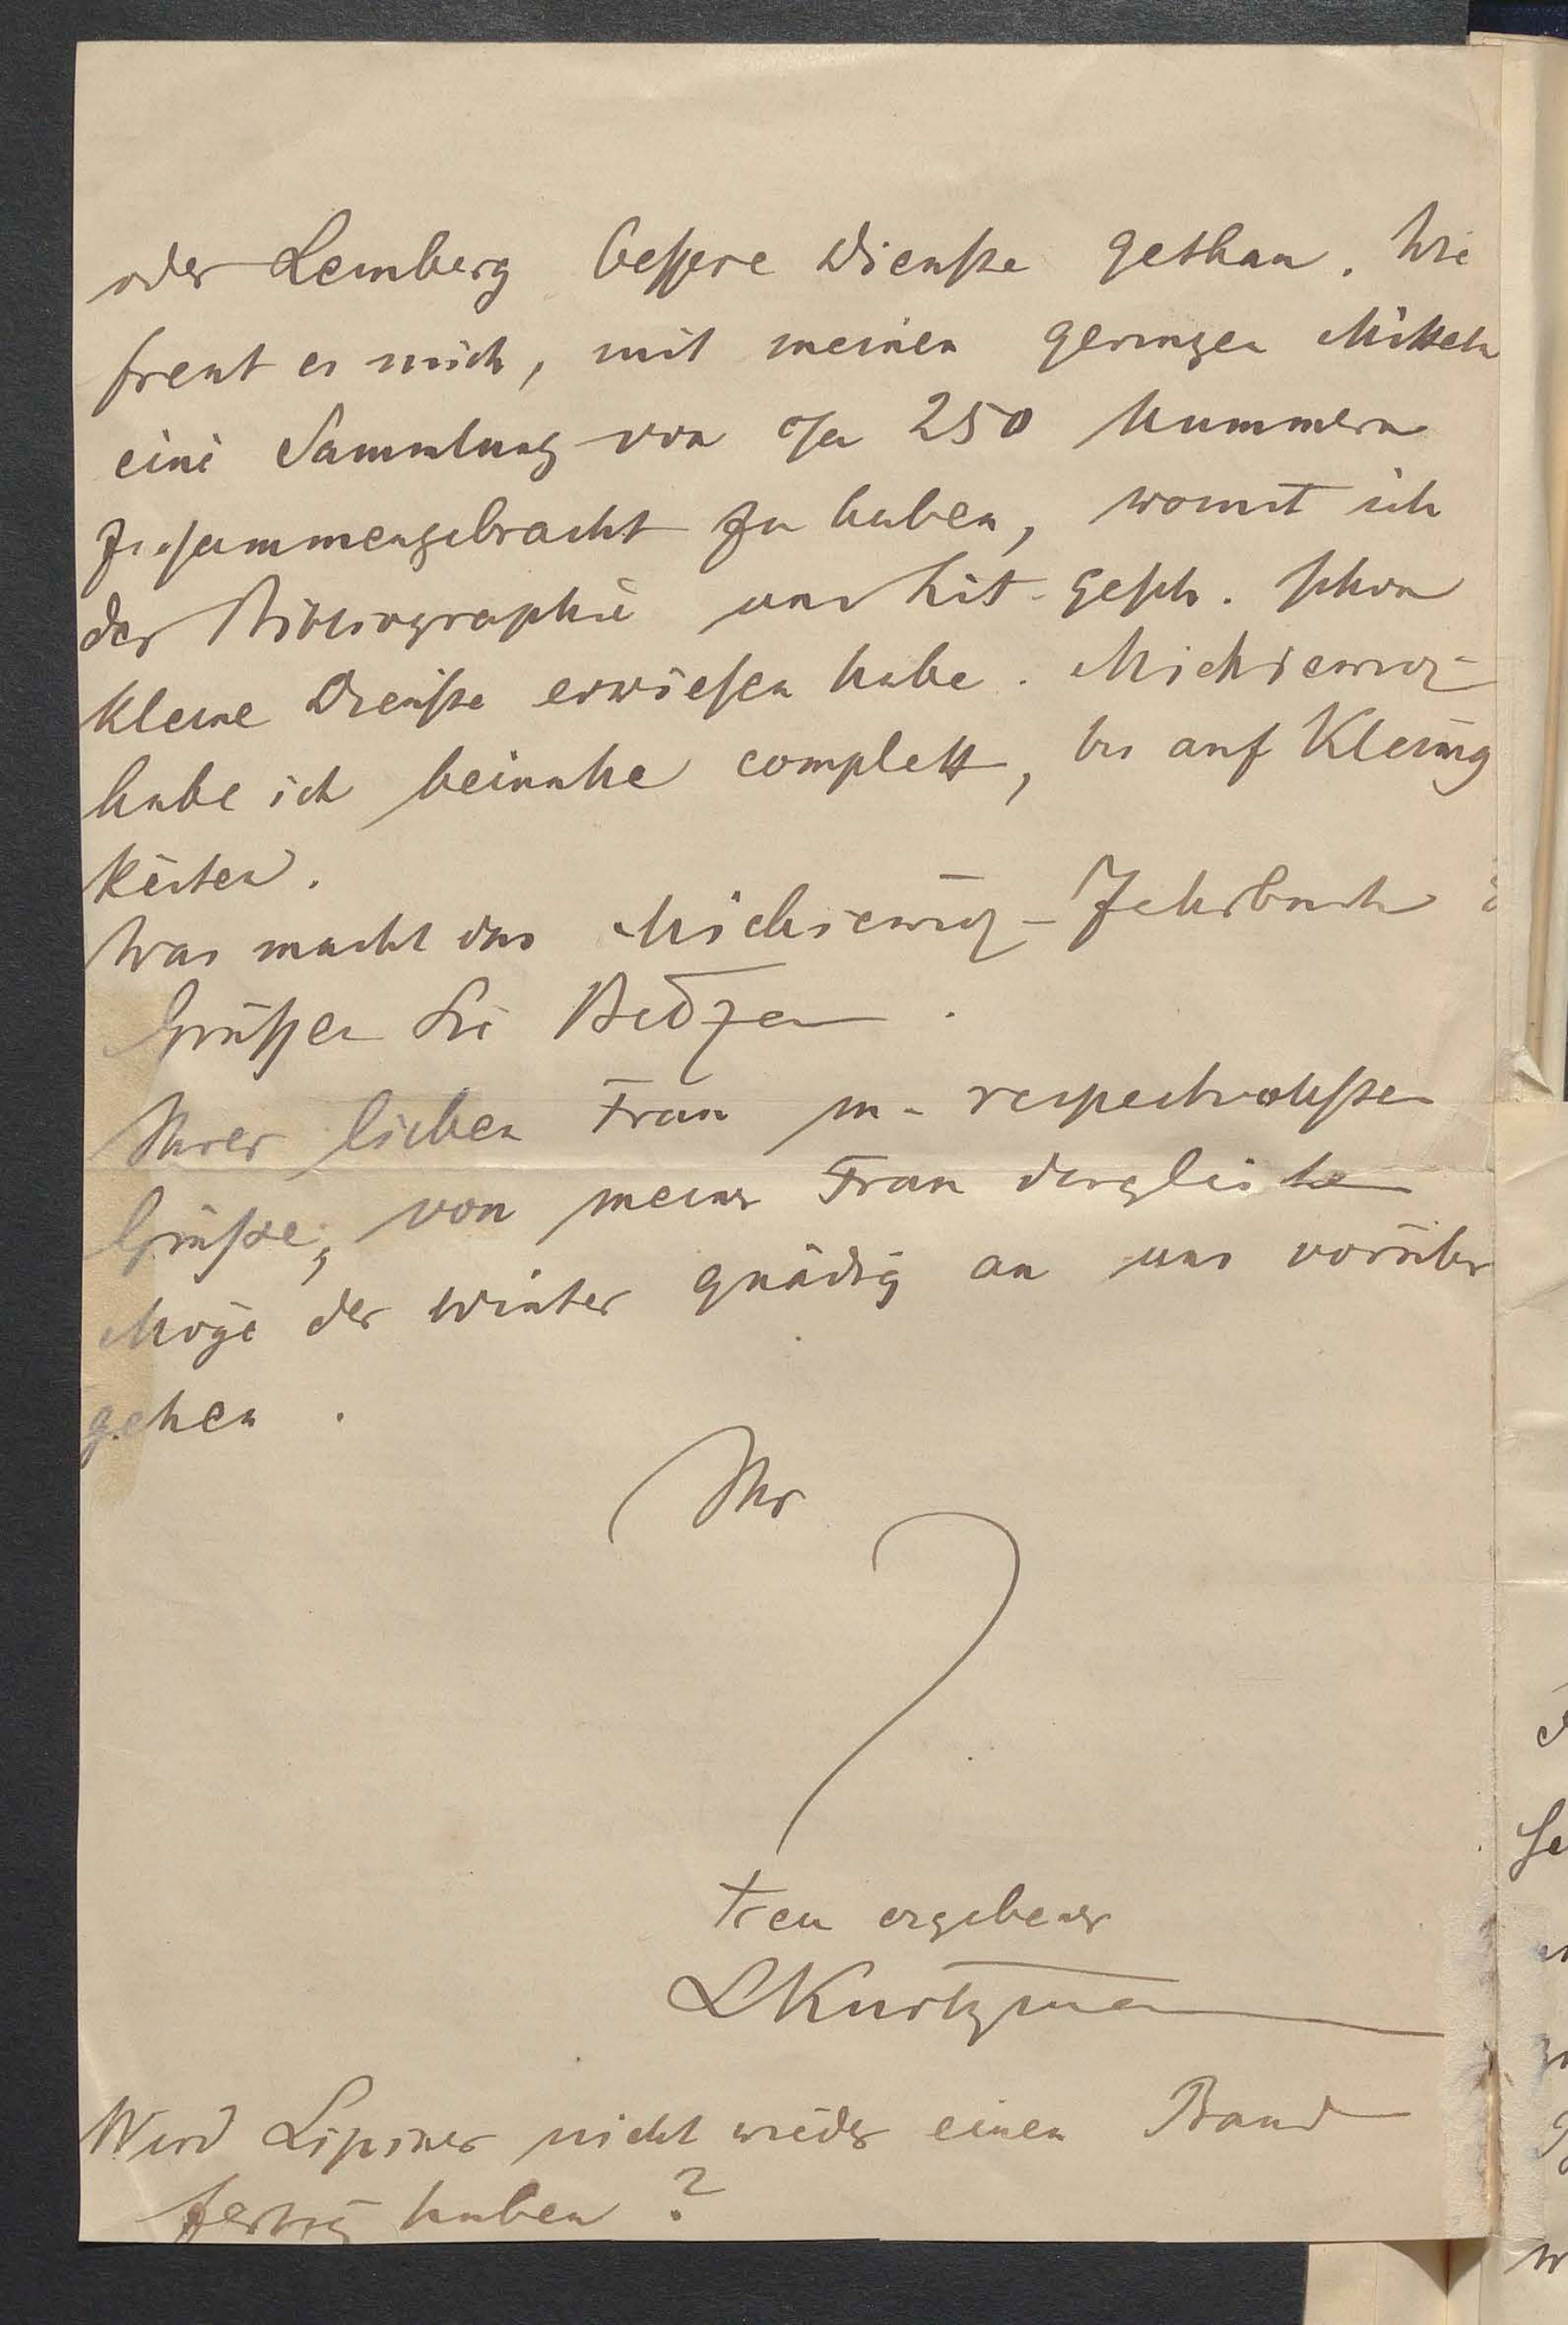 oder Lemberg bessere Dienste gethan. Wie
freut es mich, mit meinen geringen Mitteln
eine Sammlung von c/a 250 Nummern
zusammengebracht zu haben, womit ich
der Bibliographie und Lit-gesch. schon
kleine Dienste erwiesen habe. Mickiewicz
habe ich beinahe complett, bis auf Kleinig
keiten.
Was macht das Mickiewicz-Jahrbuch?
Grüßen Sie
Ihrer lieben Frau m. respectvollsten
Grüße, von meiner Frau dergleichen
Möge der Winter gnädig an uns vorüber
gehen.
Ihr
treu ergebener
LKurtzmann
Wird Lipiner nicht wieder einen Band
fertig haben?